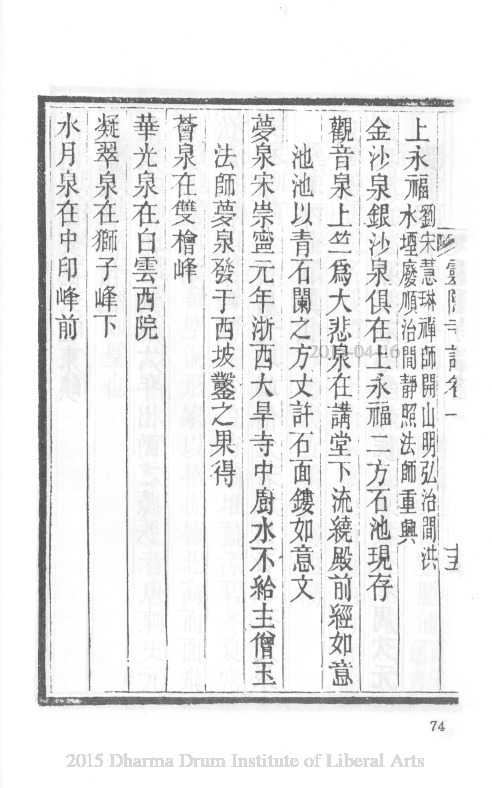 靈隱寺誌卷一
十五
上永福劉宋慧琳禪師開山明弘治間洪
水堙廢順治間靜照法師重興
金沙泉銀沙泉俱在上永福二方石池現存
觀音泉上竺為大悲泉在講堂下流繞殿前經如意
池池以青石闌之方丈許石面鏤如意文
夢泉宋崇寧元年浙西大旱寺中廚水不給主僧玉
法師夢泉發于西坡鑿之果得
薈泉在雙檜峰
華光泉在白雲西院
凝翠泉在獅子峰下
水月泉在中印峰前
74
2015 Dharma Drum Institute of Liberal Arts